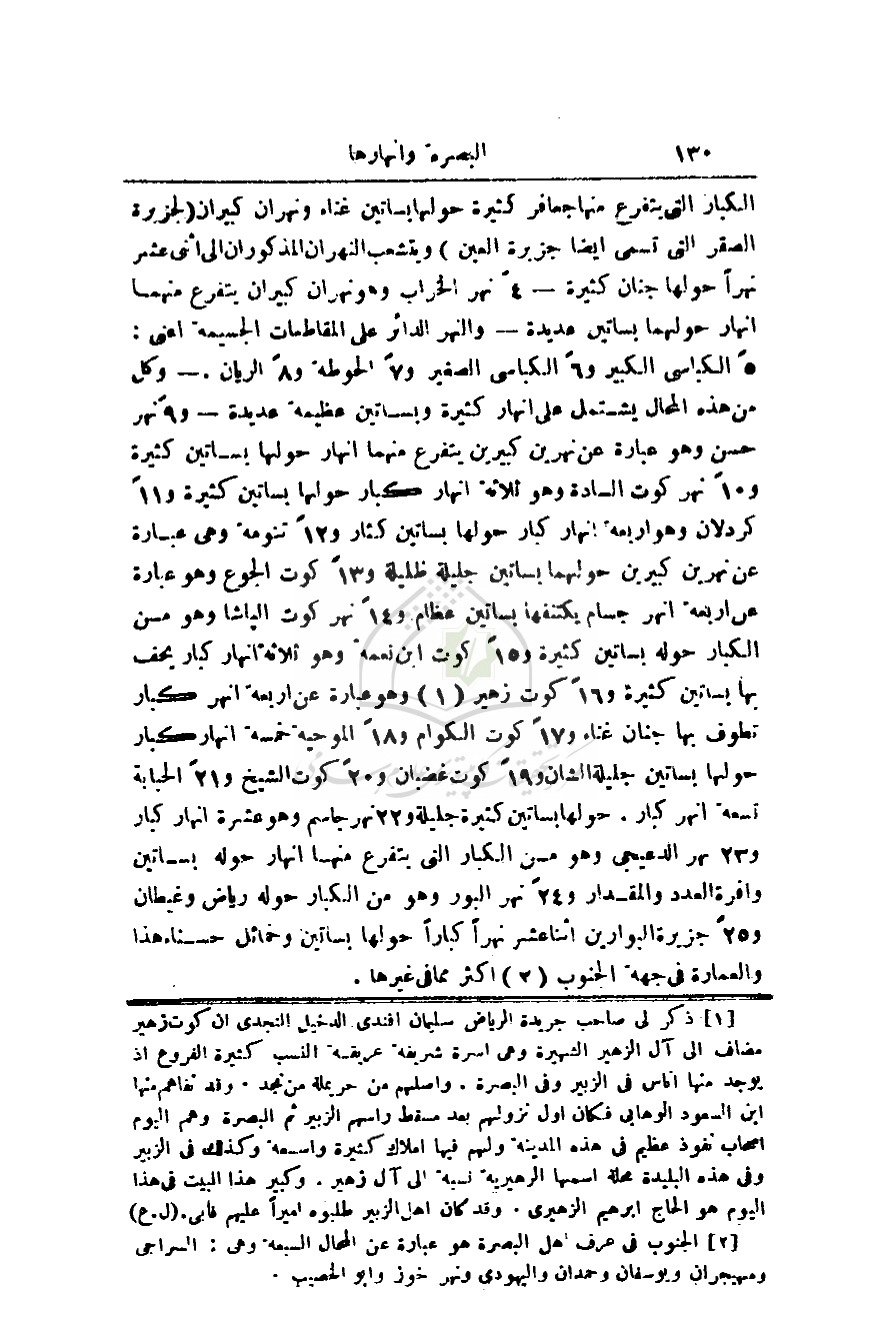 ١٣٠ البصرة وانهارها
الكبار التي يتفرع منها جعافر كثيرة حولها بساتين غناء ونهران كبيران (لجزيرة
الصقر التي تسمى ايضا جزيرة العين ) ويتشعب النهران المذكوران الى اثنى عشر
نهراً حولها جنان كثيرة — ٤ً نهر الخراب وهو نهران كبيران يتفرع منهما
انهار حولهما بساتين عديدة — والنهر الدائر على المقاطعات الجسيمة اعنى :
٥ً الكباسى الكبير و٦ً الكباسى الصغير و٧ً الحوطة و٨ً الريان . — وكل
من هذه المحال يشتمل على انهار كثيرة وبساتين عظيمة عديدة — و٩ً نهر
حسن وهو عبارة عن نهرين كبيرين يتفرع منهما انهار حولها بساتين كثيرة
و١٠ً نهر كوت السادة وهو ثلاثة انهار كبار حولها بساتين كثيرة و١١ً
كردلان وهو اربعة انهار كبار حولها بساتين كثار و١٢ً تنومة وهى عبارة
عن نهرين كبيرين حولهما بساتين جليلة ظليلة و١٣ً كوت الجوع وهو عبارة
عن اربعة انهر جسام يكتنفها بساتين عظام و١٤ً نهر كوت الپاشا وهو من
الكبار حوله بساتين كثيرة و١٥ً كوت ابن نعمة وهو ثلاثة انهار كبار يحف
بها بساتين كثيرة و١٦ً كوت زهير (١) وهو عبارة عن اربعة انهر كبار
تطوف بها جنان غناء و١٧ً كوت الكوام و١٨ً الموحية خمسة انهار كبار
حولها بساتين جليلة الشان و١٩ً كوت غضبان و٢٠ً كوت الشيخ و٢١ً الحبابة
تسعة انهر كبار . حولها بساتين كثيرة جليلة و٢٢ نهر جاسم وهو عشرة انهار كبار
و٢٣ نهر الدعيجي وهو من الكبار التي يتفرع منها انهار حوله بساتين
وافرة العدد والمقدار و٢٤ً نهر البور وهو من الكبار حوله رياض وغيطان
و٢٥ً جزيرة البوارين اثنا عشر نهراً كباراً حولها بساتين وخمائل حسناء هذا
والعمارة في جهة الجنوب (٢) اكثر مما في غيرها .
[١] ذكر لى صاحب جريدة الرياض سليمان افندى الدخيل النجدى ان كوت زهير
مضاف الى آل الزهير الشهيرة وهى اسرة شريفة عريقة النسب كثيرة الفروع اذ
يوجد منها اناس فى الزبير وفى البصرة . واصلهم من حريملة من نجد . وقد نفاهم منها
ابن السعود الوهابى فكان اول نزولهم بعد مسقط راسهم الزبير ثم البصرة وهم اليوم
اصحاب نفوذ عظيم فى هذه المدينة ولهم فيها املاك كثيرة واسعة وكذلك فى الزبير
وفى هذه البليدة محلة اسمها الزهيرية نسبة الى آل زهير . وكبير هذا البيت فى هذا
اليوم هو الحاج ابرهيم الزهيرى . وقد كان اهل الزبير طلبوه اميراً عليهم فابى.(ل.ع)
[٢] الجنوب فى عرف اهل البصرة هو عبارة عن المحال السبعة وهى : السراجى
ومهيجران ويوسفان وحمدان واليهودى ونهر خوز وابو الخصيب .